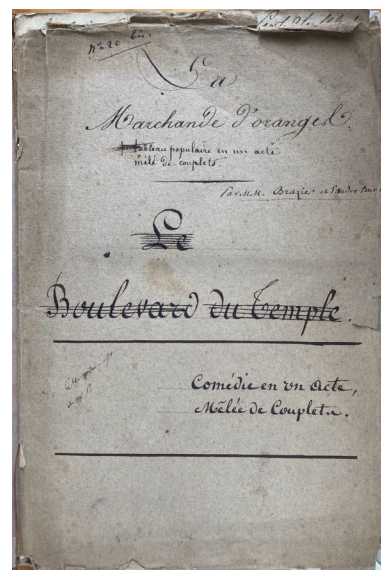 nº 20 bis.
La
Marchande d'oranges.
tableau populaire en un acte
mêlé de couplets.
Par M.M. Brazier et
Le
Boulevard du Temple.
Comédie en un Acte,
Mêlée de Couplets.